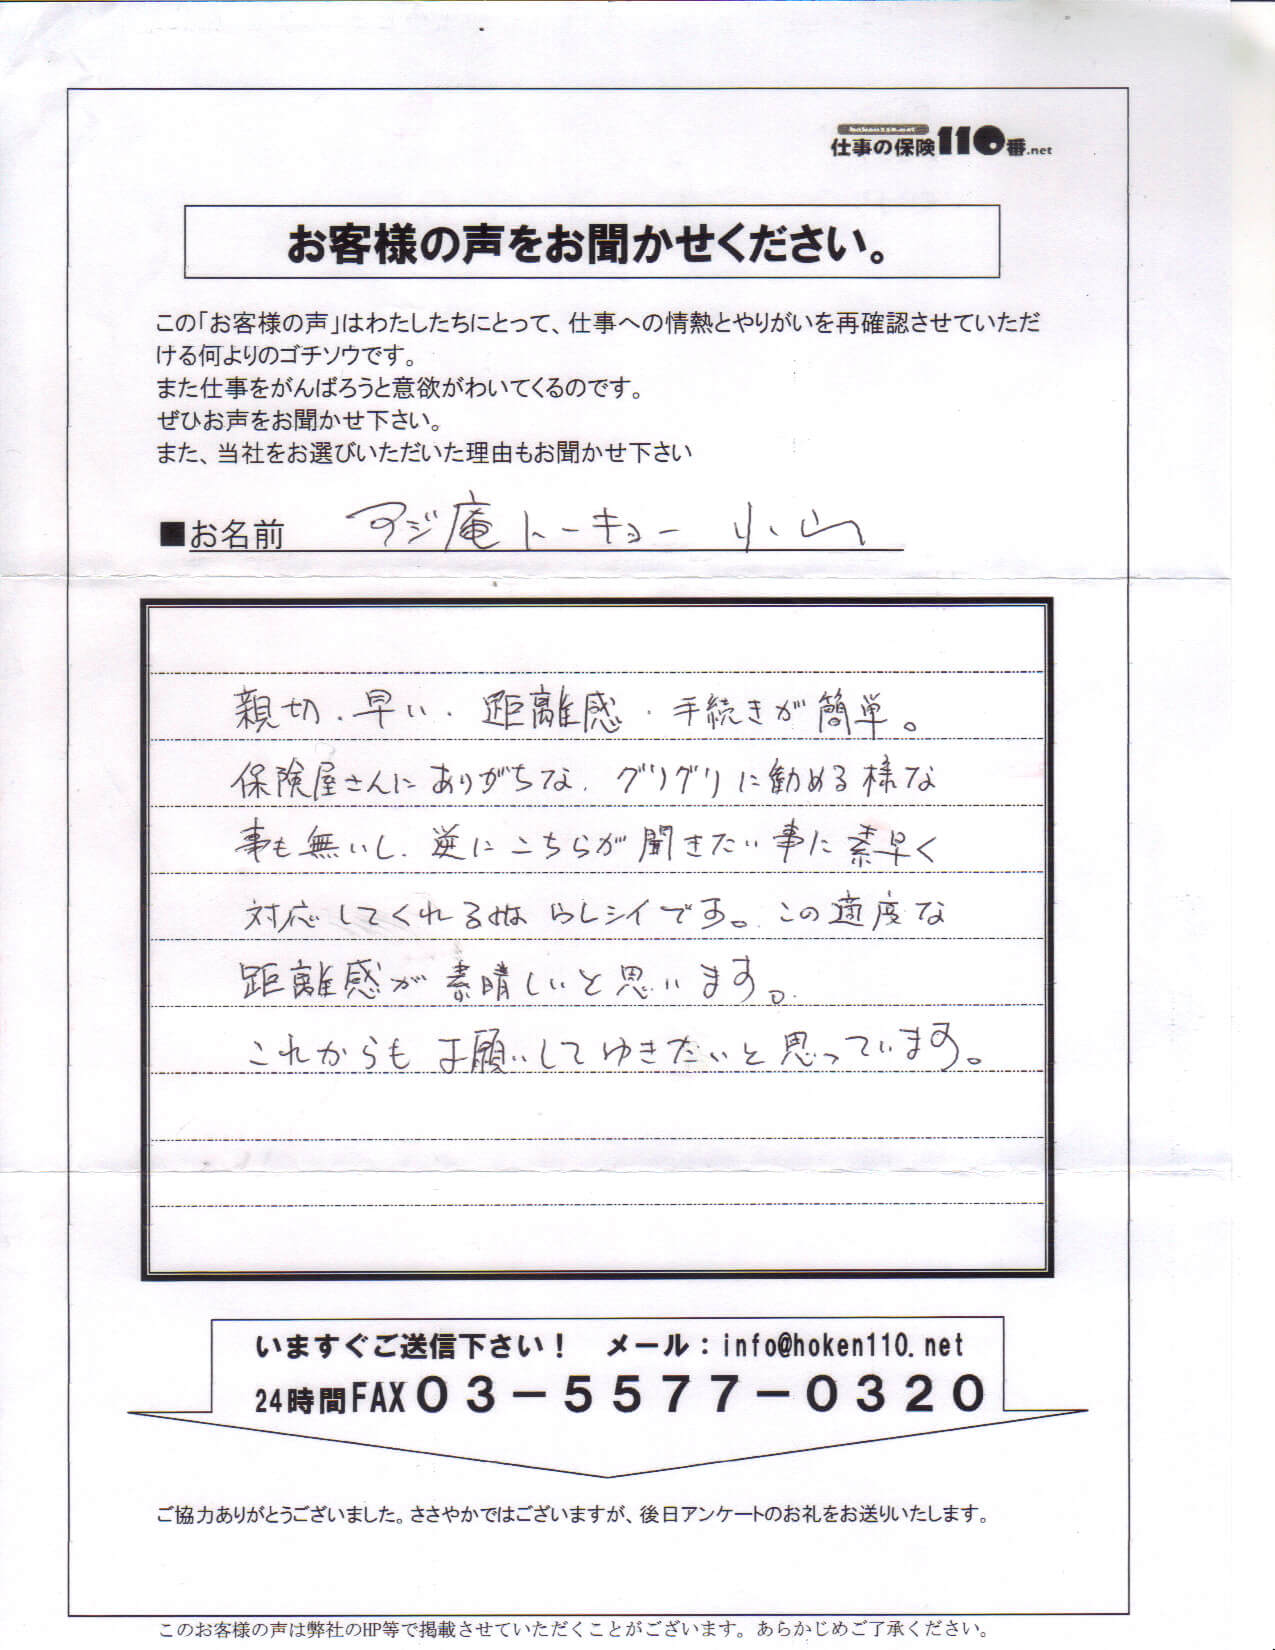 hoken110.net
仕事の保険110番.net
お客様の声をお聞かせください。
この「お客様の声」はわたしたちにとって、仕事への情熱とやりがいを再確認させていただ
ける何よりのゴチソウです。
また仕事をがんばろうと意欲がわいてくるのです。
ぜひお声をお聞かせ下さい。
また、当社をお選びいただいた理由もお聞かせ下さい
■お名前 アジ庵トーキョー 小山
親切・早い・距離感・手続きが簡単。
保険屋さんにありがちな、グリグリに勧める様な
事も無いし、逆にこちらが聞きたい事に素早く
対応してくれるのは うレシイです。この適度な
距離感が素晴しいと思います。
これからもお願いしてゆきたいと思っています。
いますぐご送信下さい！ メール：info@hoken110.net
24時間FAX０３－５５７７－０３２０
ご協力ありがとうございました。ささやかではございますが、後日アンケートのお礼をお送りいたします。
このお客様の声は弊社のHP等で掲載させていただくことがございます。あらかじめご了承ください。